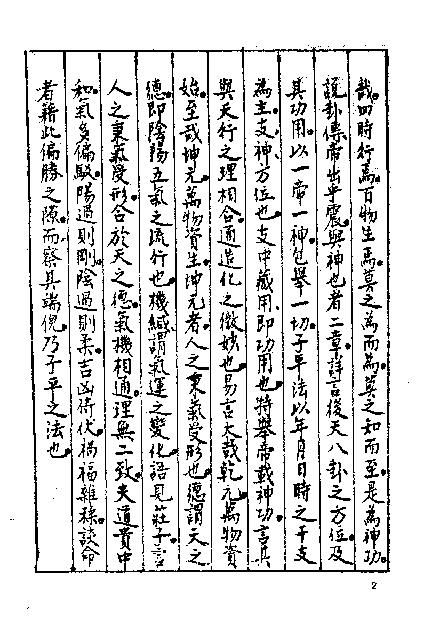 哉。四時行焉。百物生焉。莫之為而為。莫之知而至。是為神功。
說卦傳帝出乎震。與神也者二章。詳言後天八卦之方位及
其功用。以一帝一神包舉一切。子平法以年月日時之干支
為主。支神方位也。支中藏用。即功用也。特舉帝載神功。言其
與天行之理相合。通造化之微妙也。易言大哉乾元。萬物資
始。至哉坤元。萬物資生。坤元者。人之秉氣受形也。德謂天之
德。即陰陽五氣之流行也。機緘謂氣運之變化。語見莊子。言
人之秉氣受形。合於天之德。氣機相通。理無二致。夫道貴中
和。氣多偏駁。陽過則剛。陰過則柔。吉凶倚伏。禍福雜糅。談命
者藉此偏勝之隙。而察其端倪。乃子平之法也。
2